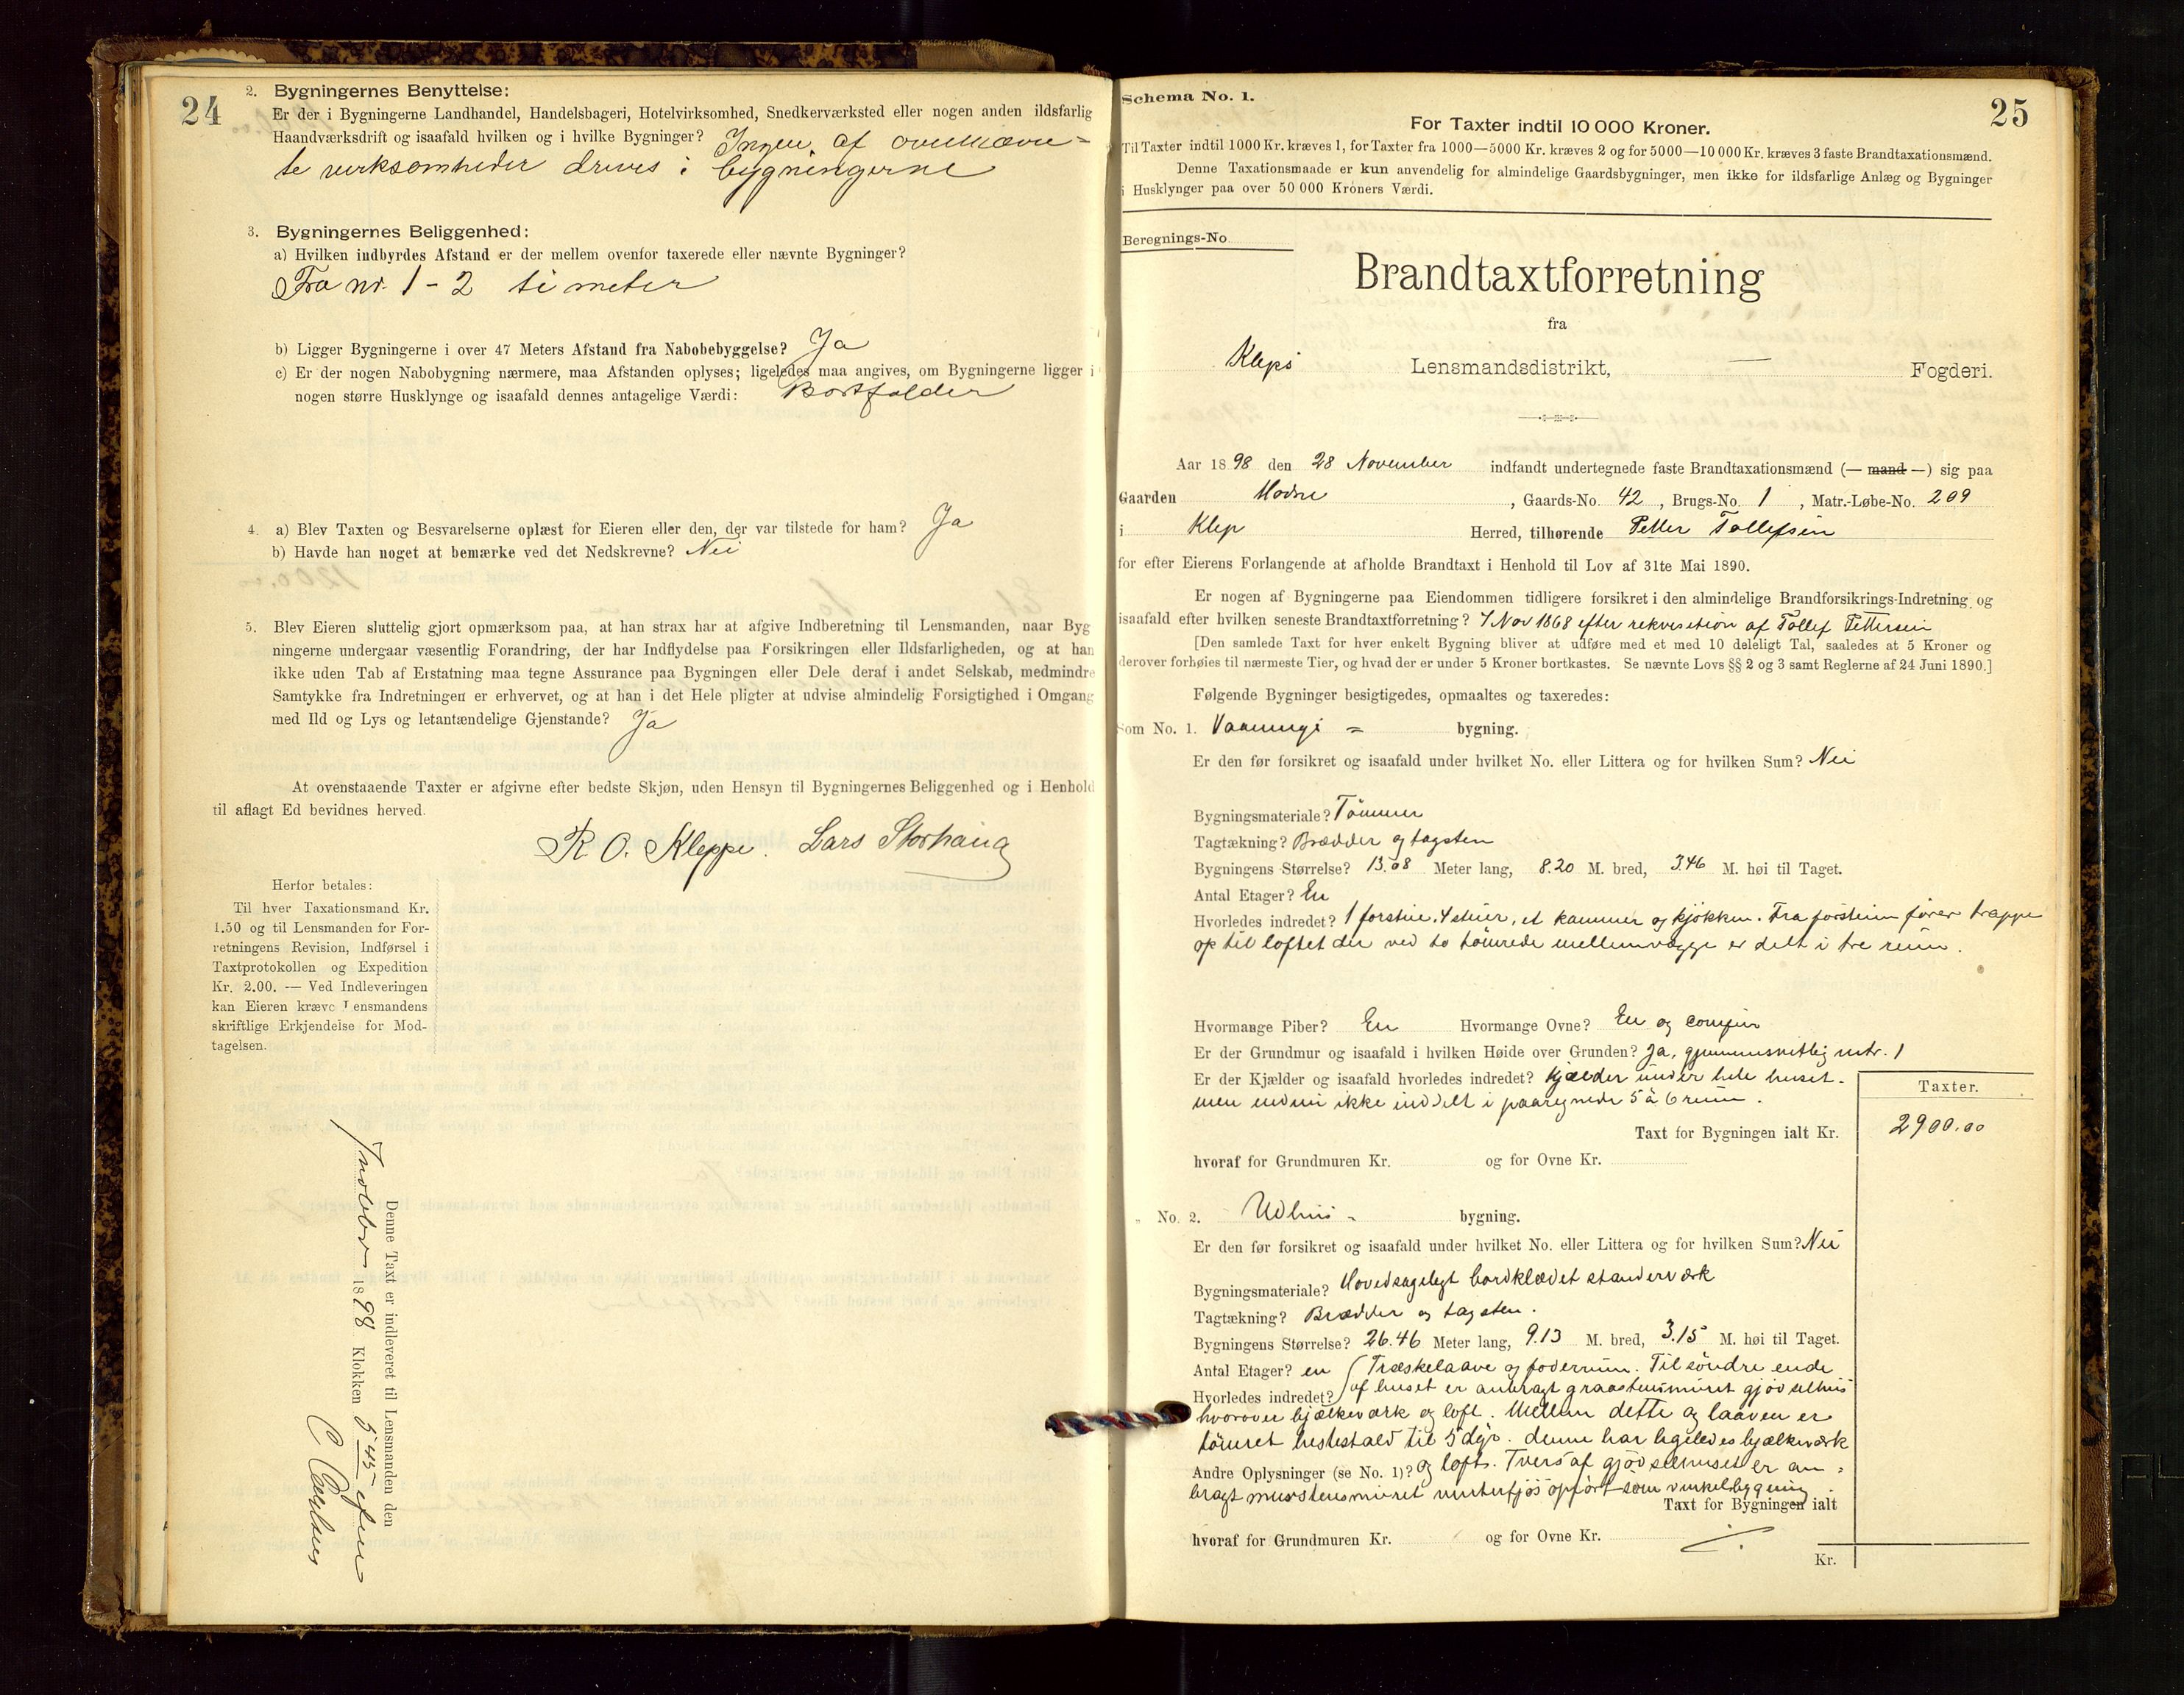 24
2. Bygningernes Benyttelse:
Er der i Bygningerne Landhandel, Handelsbageri, Hotelvirksomhed, Snedkerværksted eller nogen anden ildsfarlig
Haandværksdrift og isaafald hvilken og i hvilke Bygninger? Ingen af ovennævn-
te virksomheder drives i bygningerne
3. Bygningernes Beliggenhed:
a) Hvilken indbyrdes Afstand er der mellem ovenfor taxerede eller nævnte Bygninger?
Fra nr. 1 - 2 ti meter
b) Ligger Bygningerne i over 47 Meters Afstand fra Nabobebyggelse? Ja
c) Er der nogen Nabobygning nærmere, maa Afstanden oplyses; ligeledes maa angives, om Bygningerne ligger i
nogen større Husklynge og isaafald dennes antagelige Værdi: Bortfalder
4. a) Blev Taxten og Besvarelserne oplæst for Eieren eller den, der var tilstede for ham? Ja
b) Havde han noget at bemærke ved det Nedskrevne? Nei
5. Blev Eieren sluttelig gjort opmærksom paa, at han strax har at afgive Indberetning til Lensmanden, naar Byg
ningerne undergaar væsentlig Forandring, der har Indflydelse paa Forsikringen eller Ildsfarligheden, og at han
ikke uden Tab af Erstatning maa tegne Assurance paa Bygningen eller Dele deraf i andet Selskab, medmindre
Samtykke fra Indretningen er erhvervet, og at han i det Hele pligter at udvise almindelig Forsigtighed i Omgang
med Ild og Lys og letantændelige Gjenstande? Ja
At ovenstaaende Taxter er afgivne efter bedste Skjøn, uden Hensyn til Bygningernes Beliggenhed og i Henhold
til aflagt Ed bevidnes herved.
R. O. Kleppe. Lars Storhaug
Herfor betales:
Til hver Taxationsmand Kr.
1.50 og til Lensmanden for For-
retningens Revision, Indførsel i
Taxtprotokollen og Expedition
Kr. 2.00. — Ved Indleveringen
kan Eieren kræve Lensmandens
skriftlige Erkjendelse for Mod-
tagelsen.
Denne Taxt er indleveret til Lensmanden den
1898 Klokken 5 45 efm
25
Schema No. 1.
For Taxter indtil 10 000 Kroner.
Til Taxter indtil 1000 Kr. kræves 1, for Taxter fra 1000—5000 Kr. kræves 2 og for 5000—10 000 Kr. kræves 3 faste Brandtaxationsmænd.
Denne Taxationsmaade er kun anvendelig for almindelige Gaardsbygninger, men ikke for ildsfarlige Anlæg og Bygninger
i Husklynger paa over 50 000 Kroners Værdi.
Beregnings-No
Brandtaxtforretning
fra
Kleps Lensmandsdistrikt, — Fogderi.
Aar 1898 den 28 November indfandt undertegnede faste Brandtaxationsmænd (— mand —) sig paa
Gaarden Hodne, Gaards-No. 42, Brugs-No. 1, Matr.-Løbe-No. 209
i Klep Herred, tilhørende Petter Tollefsen
for efter Eierens Forlangende at afholde Brandtaxt i Henhold til Lov af 31te Mai 1890.
Er nogen af Bygningerne paa Eiendommen tidligere forsikret i den almindelige Brandforsikrings-Indretning og
isaafald efter hvilken seneste Brandtaxtforretning? 7 Nov 1868 efter rekvisition af Tollef Pettersen
[Den samlede Taxt for hver enkelt Bygning bliver at udføre med et med 10 deleligt Tal, saaledes at 5 Kroner og
derover forhøies til nærmeste Tier, og hvad der er under 5 Kroner bortkastes. Se nævnte Lovs §§ 2 og 3 samt Reglerne af 24 Juni 1890.]
Følgende Bygninger besigtigedes, opmaaltes og taxeredes:
Som No. 1. Vaanings = bygning.
Er den før forsikret og isaafald under hvilket No. eller Littera og for hvilken Sum? Nei
Bygningsmateriale? Tømmer
Tagtækning? Brædder og tagsten
Bygningens Størrelse? 13.08 Meter lang, 8.20 M. bred, 3.46 M. høi til Taget.
Antal Etager? En
Hvorledes indredet? 1 forstue, 4 stuer, et kammer og kjøkken. Fra forstuen fører trappe
op til loftet der ved to tømrede mellemvægge er delt i tre rum.
Hvormange Piber? En Hvormange Ovne? En og comfur
Er der Grundmur og isaafald i hvilken Høide over Grunden? Ja, gjennemsnitlig mtr. 1
Er der Kjælder og isaafald hvorledes indredet? Kjælder under hele huset.
men endnu ikke inddelt i paaregnede 5 à 6 rum.
Taxter.
Taxt for Bygningen ialt Kr. 2900.00
hvoraf for Grundmuren Kr. og for Ovne Kr.
„ No. 2. Udhus - bygning.
Er den før forsikret og isaafald under hvilket No. eller Littera og for hvilken Sum? Nei
Bygningsmateriale? Hovedsageligt bordklædet standerværk
Tagtækning? Brædder og tagsten.
Bygningens Størrelse? 26.46 Meter lang, 9.13 M. bred, 3.15 M. høi til Taget.
Antal Etager? en Træskelaave og foderrum. Til søndre ende
Hvorledes indredet? af huset er anbragt graastensmuret gjødselhus
hvorover bjælkeværk og loft. Mellem dette og laaven er
tømret hestestald til 5 dyr. denne har ligeledes bjælkeværk
Andre Oplysninger (se No. 1)? og loft. Tvers af gjødselhuset er an-
bragt murstensmuret vinterfjøs opført som vinkelbygning
Taxt for Bygningen ialt
hvoraf for Grundmuren Kr. og for Ovne Kr.
Kr.